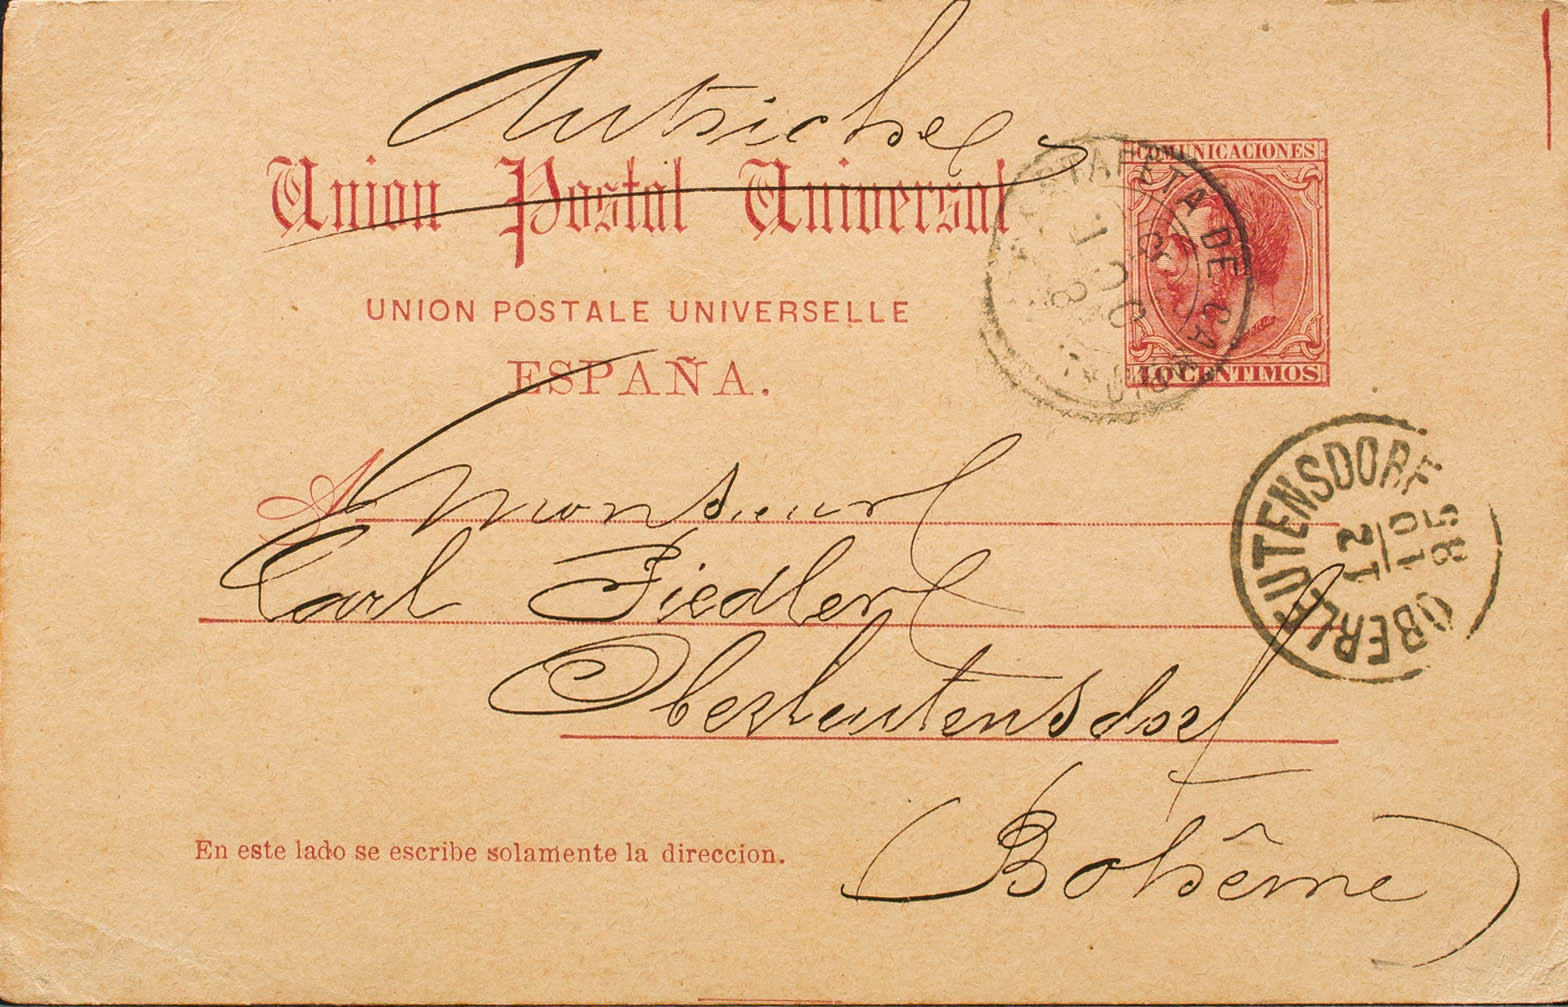 Autriche
Union Postal Universal
UNION POSTALE UNIVERSELLE
ESPAÑA.
COMUNICACIONES
10 CENTIMOS
ESTAFETA DE CAMBIO
OCT
A Monsieur
Carl Fiedler
Oberleutensdorf
Bohême
OBERLEUTENSDORF
12
10
85
En este lado se escribe solamente la direccion.